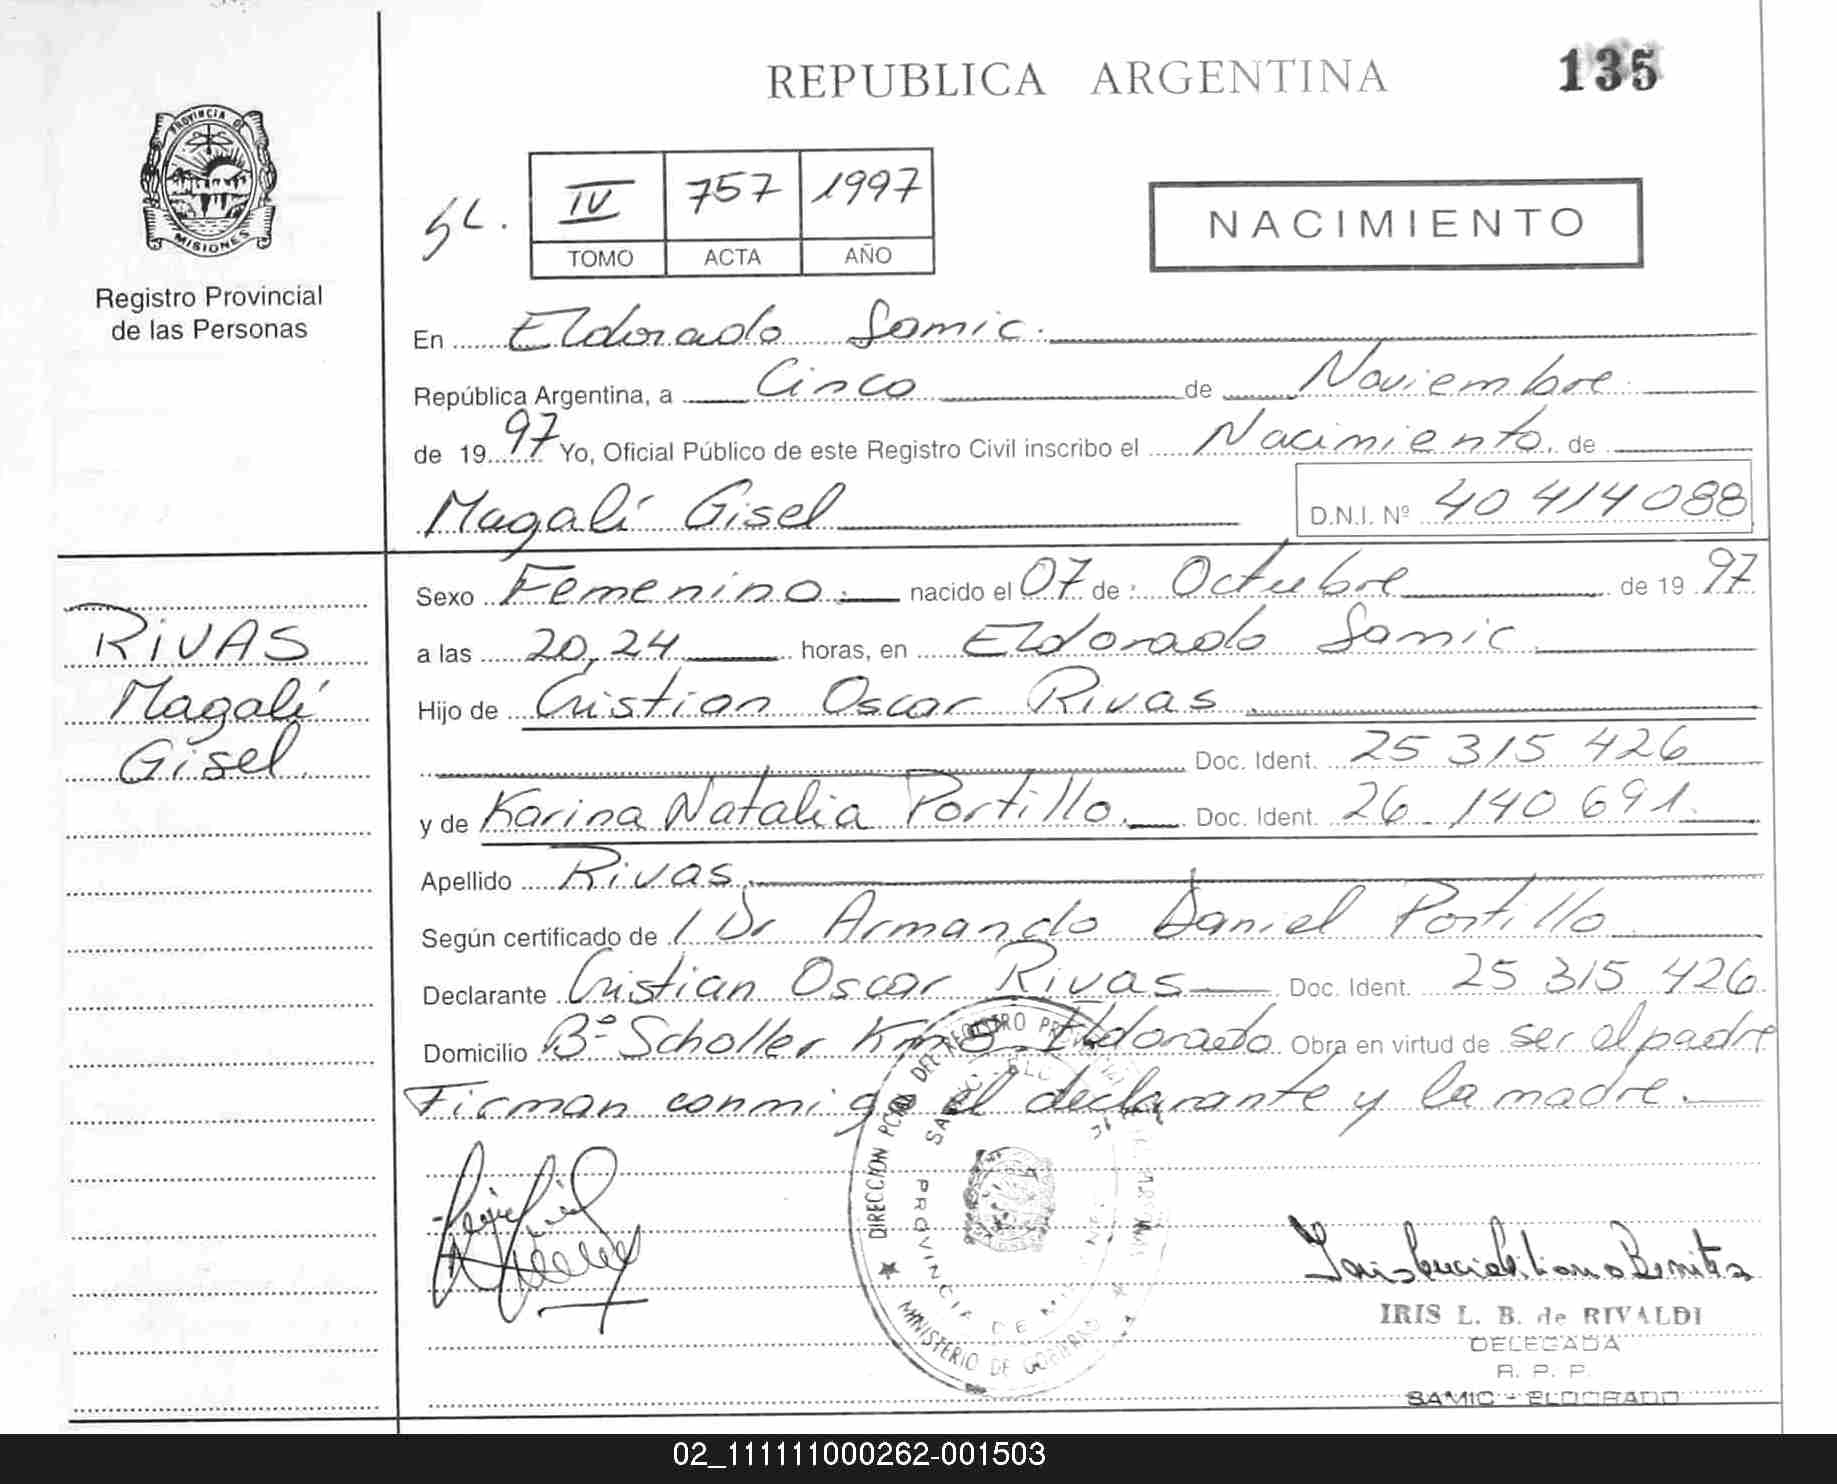 REPUBLICA ARGENTINA
135
PROVINCIA DE
MISIONES
Registro Provincial
de las Personas
IV 757 1997
TOMO ACTA AÑO
NACIMIENTO
En Eldorado Samic.
República Argentina, a Cinco de Noviembre
de 1997 Yo, Oficial Público de este Registro Civil inscribo el Nacimiento de
Magalí Gisel D.N.I. Nº 40 414 088
RIVAS
Magalí
Gisel
Sexo Femenino nacido el 07 de Octubre de 1997
a las 20,24 horas, en Eldorado Samic
Hijo de Cristian Oscar Rivas
Doc. Ident. 25 315 426
y de Karina Natalia Portillo. Doc. Ident. 26 140 691
Apellido Rivas
Según certificado de Dr Armando Daniel Portillo
Declarante Cristian Oscar Rivas Doc. Ident. 25 315 426
Domicilio Bº Scholler Km 8 Eldorado Obra en virtud de ser el padre
Firman conmigo el declarante y la madre.
DIRECCION PCIAL DEL REGISTRO
PROVINCIA DE
MINISTERIO DE GOBIERNO
IRIS L. B. de RIVALDI
DELEGADA
R. P. P.
SAMIC - ELDORADO
02_111111000262-001503